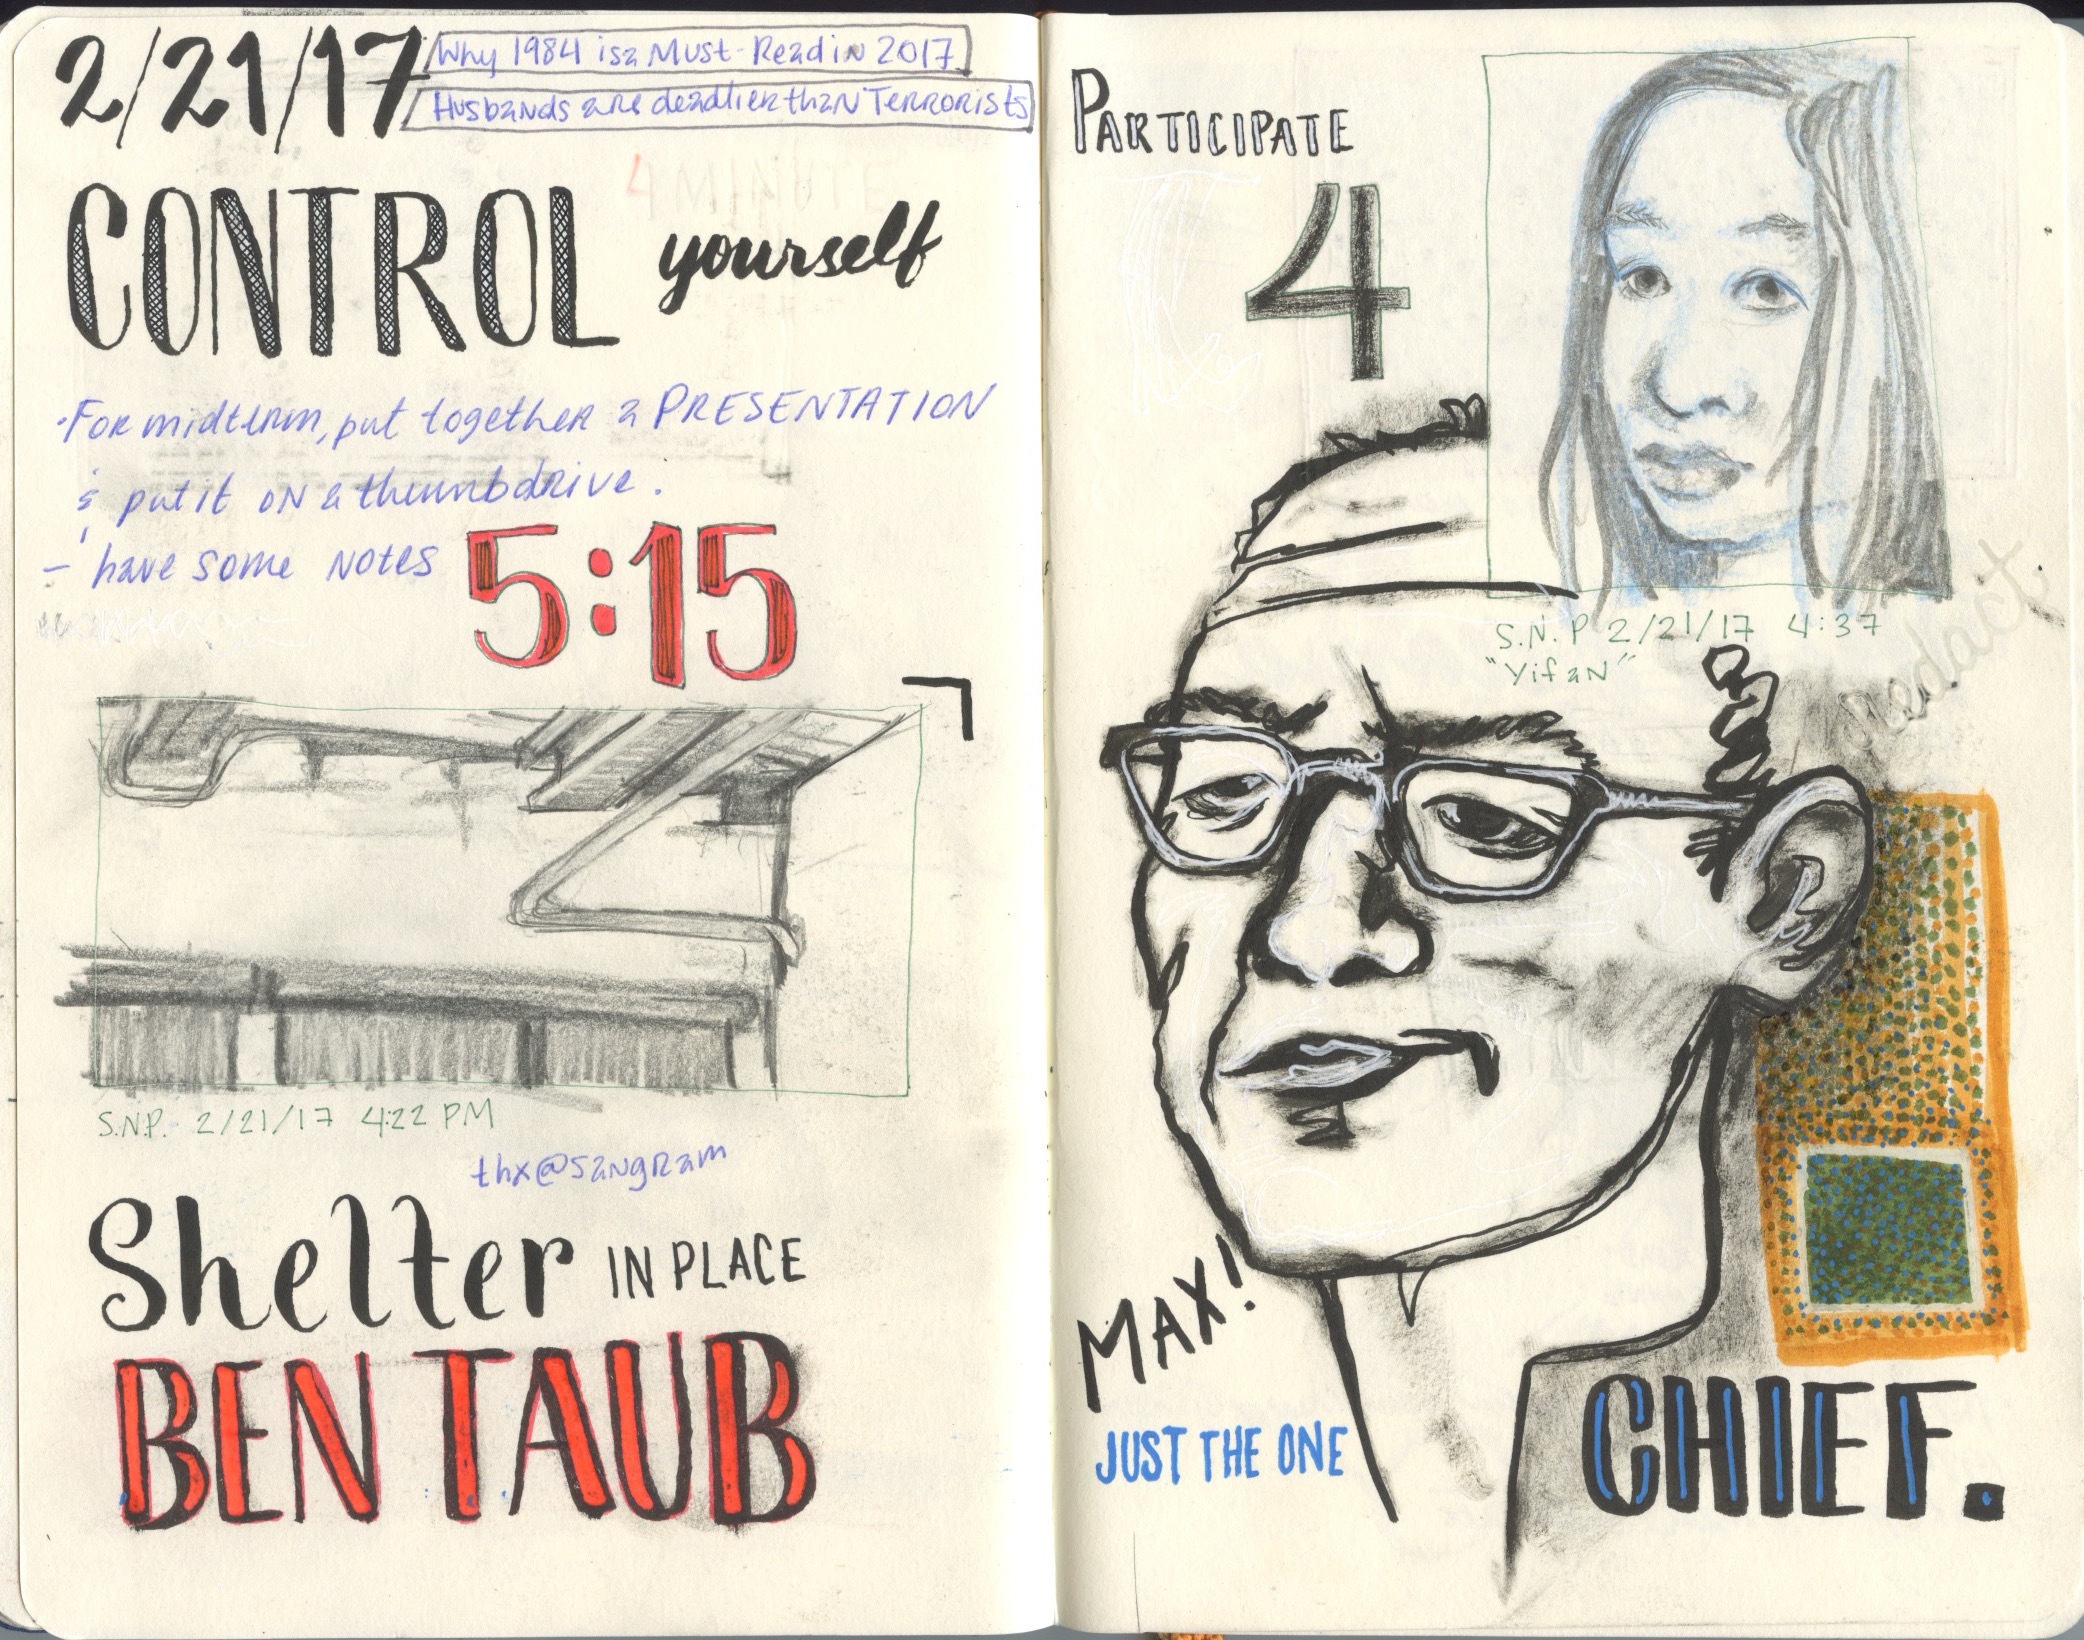 2/21/17
Why 1984 is a Must-Read in 2017
Husbands are deadlier than Terrorists
4 MINUTE
CONTROL yourself
·For midterm, put together a PRESENTATION
& put it on a thumbdrive.
- have some notes
5:15
S.N.P. 2/21/17 4:22 PM
thx@sangram
Shelter IN PLACE
BEN TAUB
PARTICIPATE
4
S.N.P 2/21/17 4:37
"Yifan"
Redact
MAX!
JUST THE ONE
CHIEF.